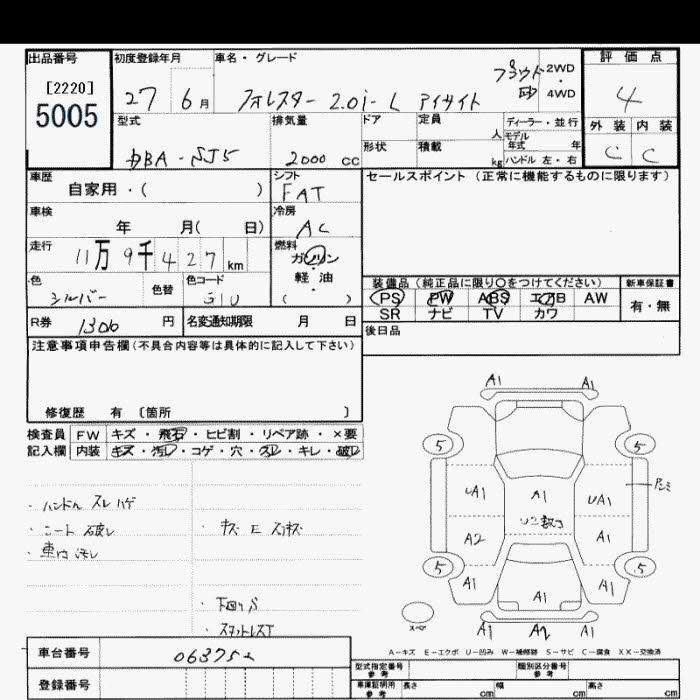 出品番号
[2220]
5005
初度登録年月
27 6月
車名・グレード
フォレスター 2.0i-L アイサイト
2WD
・
4WD
評価点
4
外装 内装
C C
型式
DBA-SJ5
排気量
2000 cc
ドア
形状
定員
人
積載
kg
ディーラー・並行
モデル年式 年
ハンドル 左・右
車歴
自家用・( )
シフト
FAT
セールスポイント (正常に機能するものに限ります)
車検
年 月( 日)
冷房
AC
走行
11万9千427km
燃料
ガソリン
・
軽油
( )
色
シルバー
色替
色コード
G1U
装備品(純正品に限り○をつけてください)
新車保証書
PS PW ABS エアB AW
SR ナビ TV カワ
有・無
R券
1306 円
名変通知期限 月 日
後日品
注意事項申告欄(不具合内容等は具体的に記入して下さい)
修復歴 有 〔箇所 〕
検査員
記入欄
FW キズ・飛石・ヒビ割・リペア跡・×要
内装 キズ・汚れ・コゲ・穴・スレ・キレ・破れ
・ハンドル スレ ハゲ
・シート 破れ
・車内 汚れ
・キズ E スリキズ
・下回りS
・スタットレスT
A1 A1
5 5
UA1 A1 UA1
A2 A1
5 5
A1 A1 A1
スペア
A1 A2 A1
A-キズ E-エクボ U-凹み W-補修跡 S-サビ C-腐食 XX-交換済
車台番号
063752
登録番号
型式指定番号
参考
類別区分番号
参考
車庫証明用
参考
長さ cm
幅 cm
高さ cm